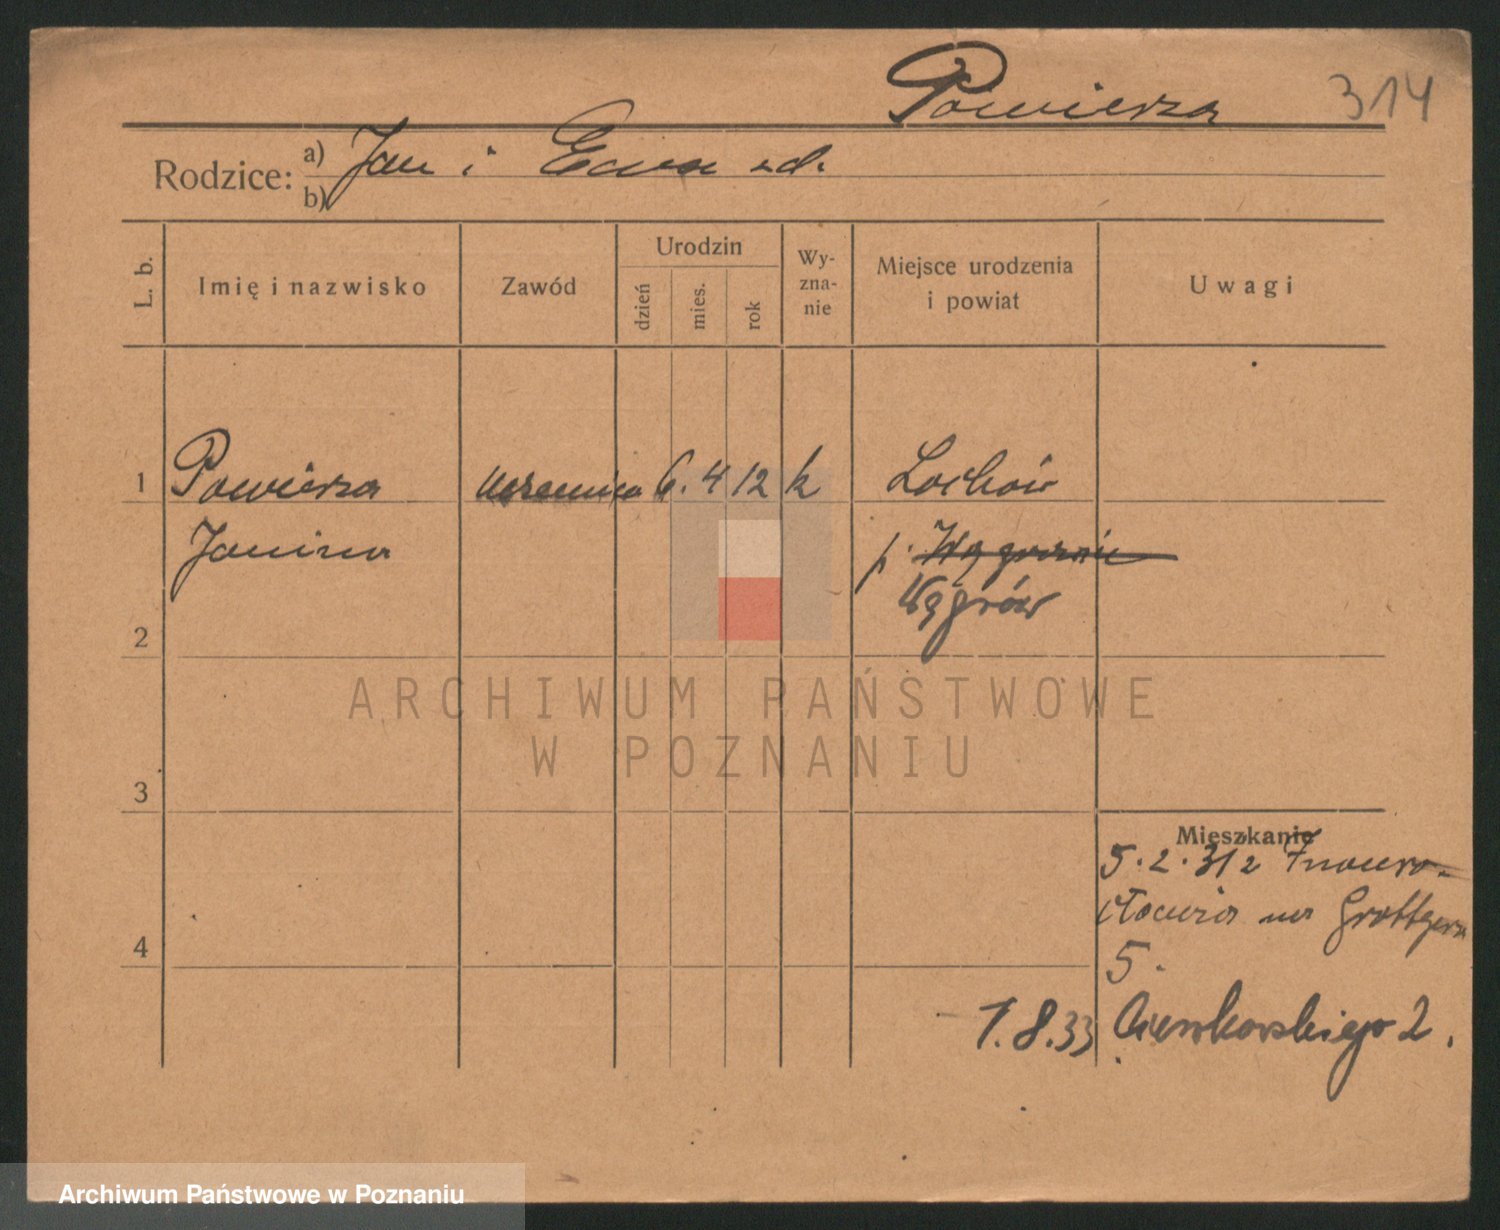 Powierza 314
Rodzice: a) Jan i Ewa zd.
b)
L. b. Imię i nazwisko Zawód Urodzin dzień mies. rok Wyznanie Miejsce urodzenia i powiat Uwagi
1 Powierza uczennica 6. 4 12 k Łochów
Janina p. Wągrowiec
Węgrów
2
ARCHIWUM PAŃSTWOWE
W POZNANIU
3
Mieszkanie
5.2.31 z Inowro-
cławia na Grottgera
4
5.
1.8.33 Cieszkowskiego 2.
Archiwum Państwowe w Poznaniu